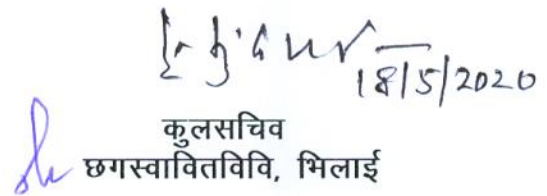 18/5/2020
कुलसचिव
छगस्वावितविवि, भिलाई